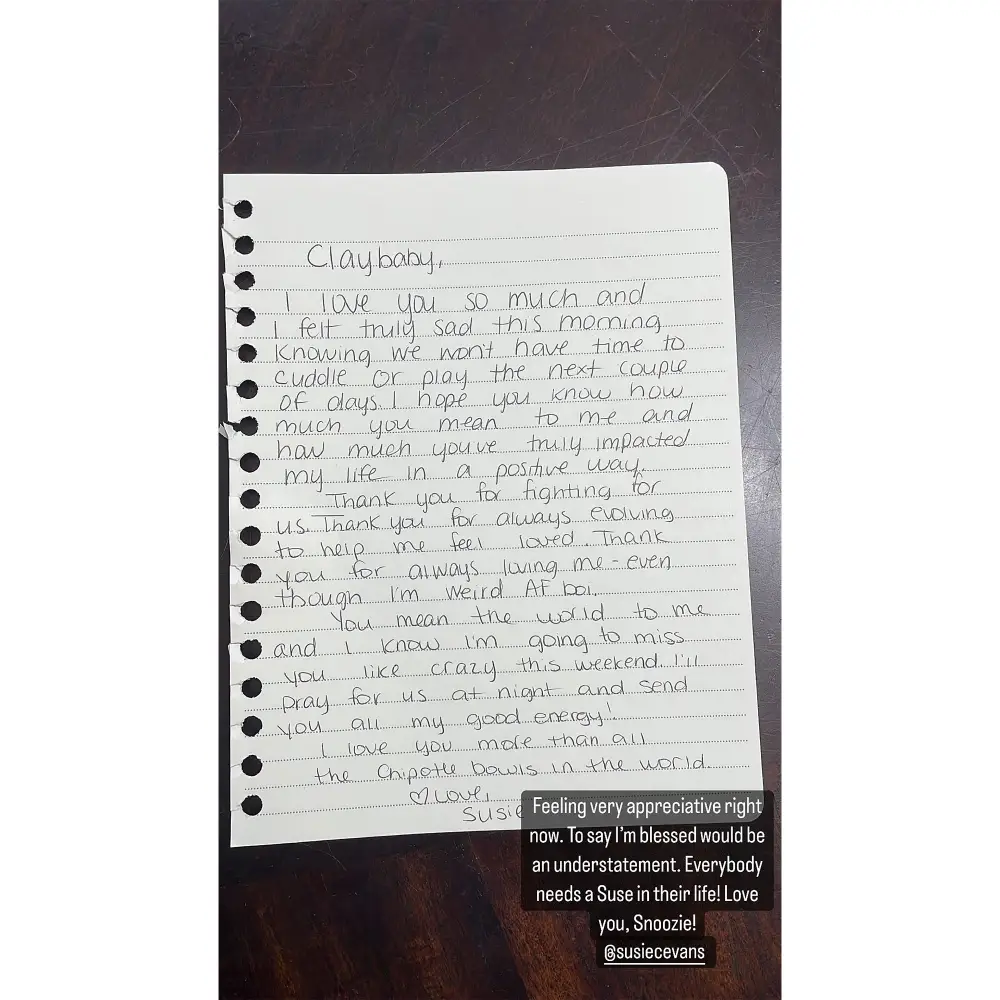 Claybaby,
I love you so much and
I felt truly sad this morning
Knowing we won't have time to
cuddle or play the next couple
of days. I hope you know how
much you mean to me and
how much you've truly impacted
my life in a positive way.
Thank you for fighting for
us. Thank you for always evolving
to help me feel loved. Thank
you for always loving me - even
though I'm weird AF boi.
You mean the world to me
and I know I'm going to miss
you like crazy this weekend. I'll
pray for us at night and send
you all my good energy!
I love you more than all
the Chipotle bowls in the world.
♡ Love,
Susie
Feeling very appreciative right
now. To say I'm blessed would be
an understatement. Everybody
needs a Suse in their life! Love
you, Snoozie!
@susiecevans